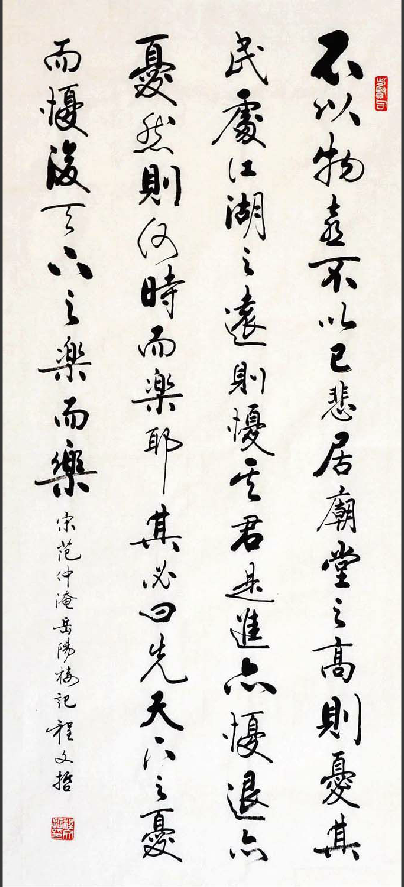 不以物喜不以己悲居廟堂之高則憂其
民處江湖之遠則懮其君是進亦懮退亦
憂然則何時而楽耶其必曰先天下之憂
而懮後天下之楽而樂
宋范仲淹岳陽樓記 程文哲